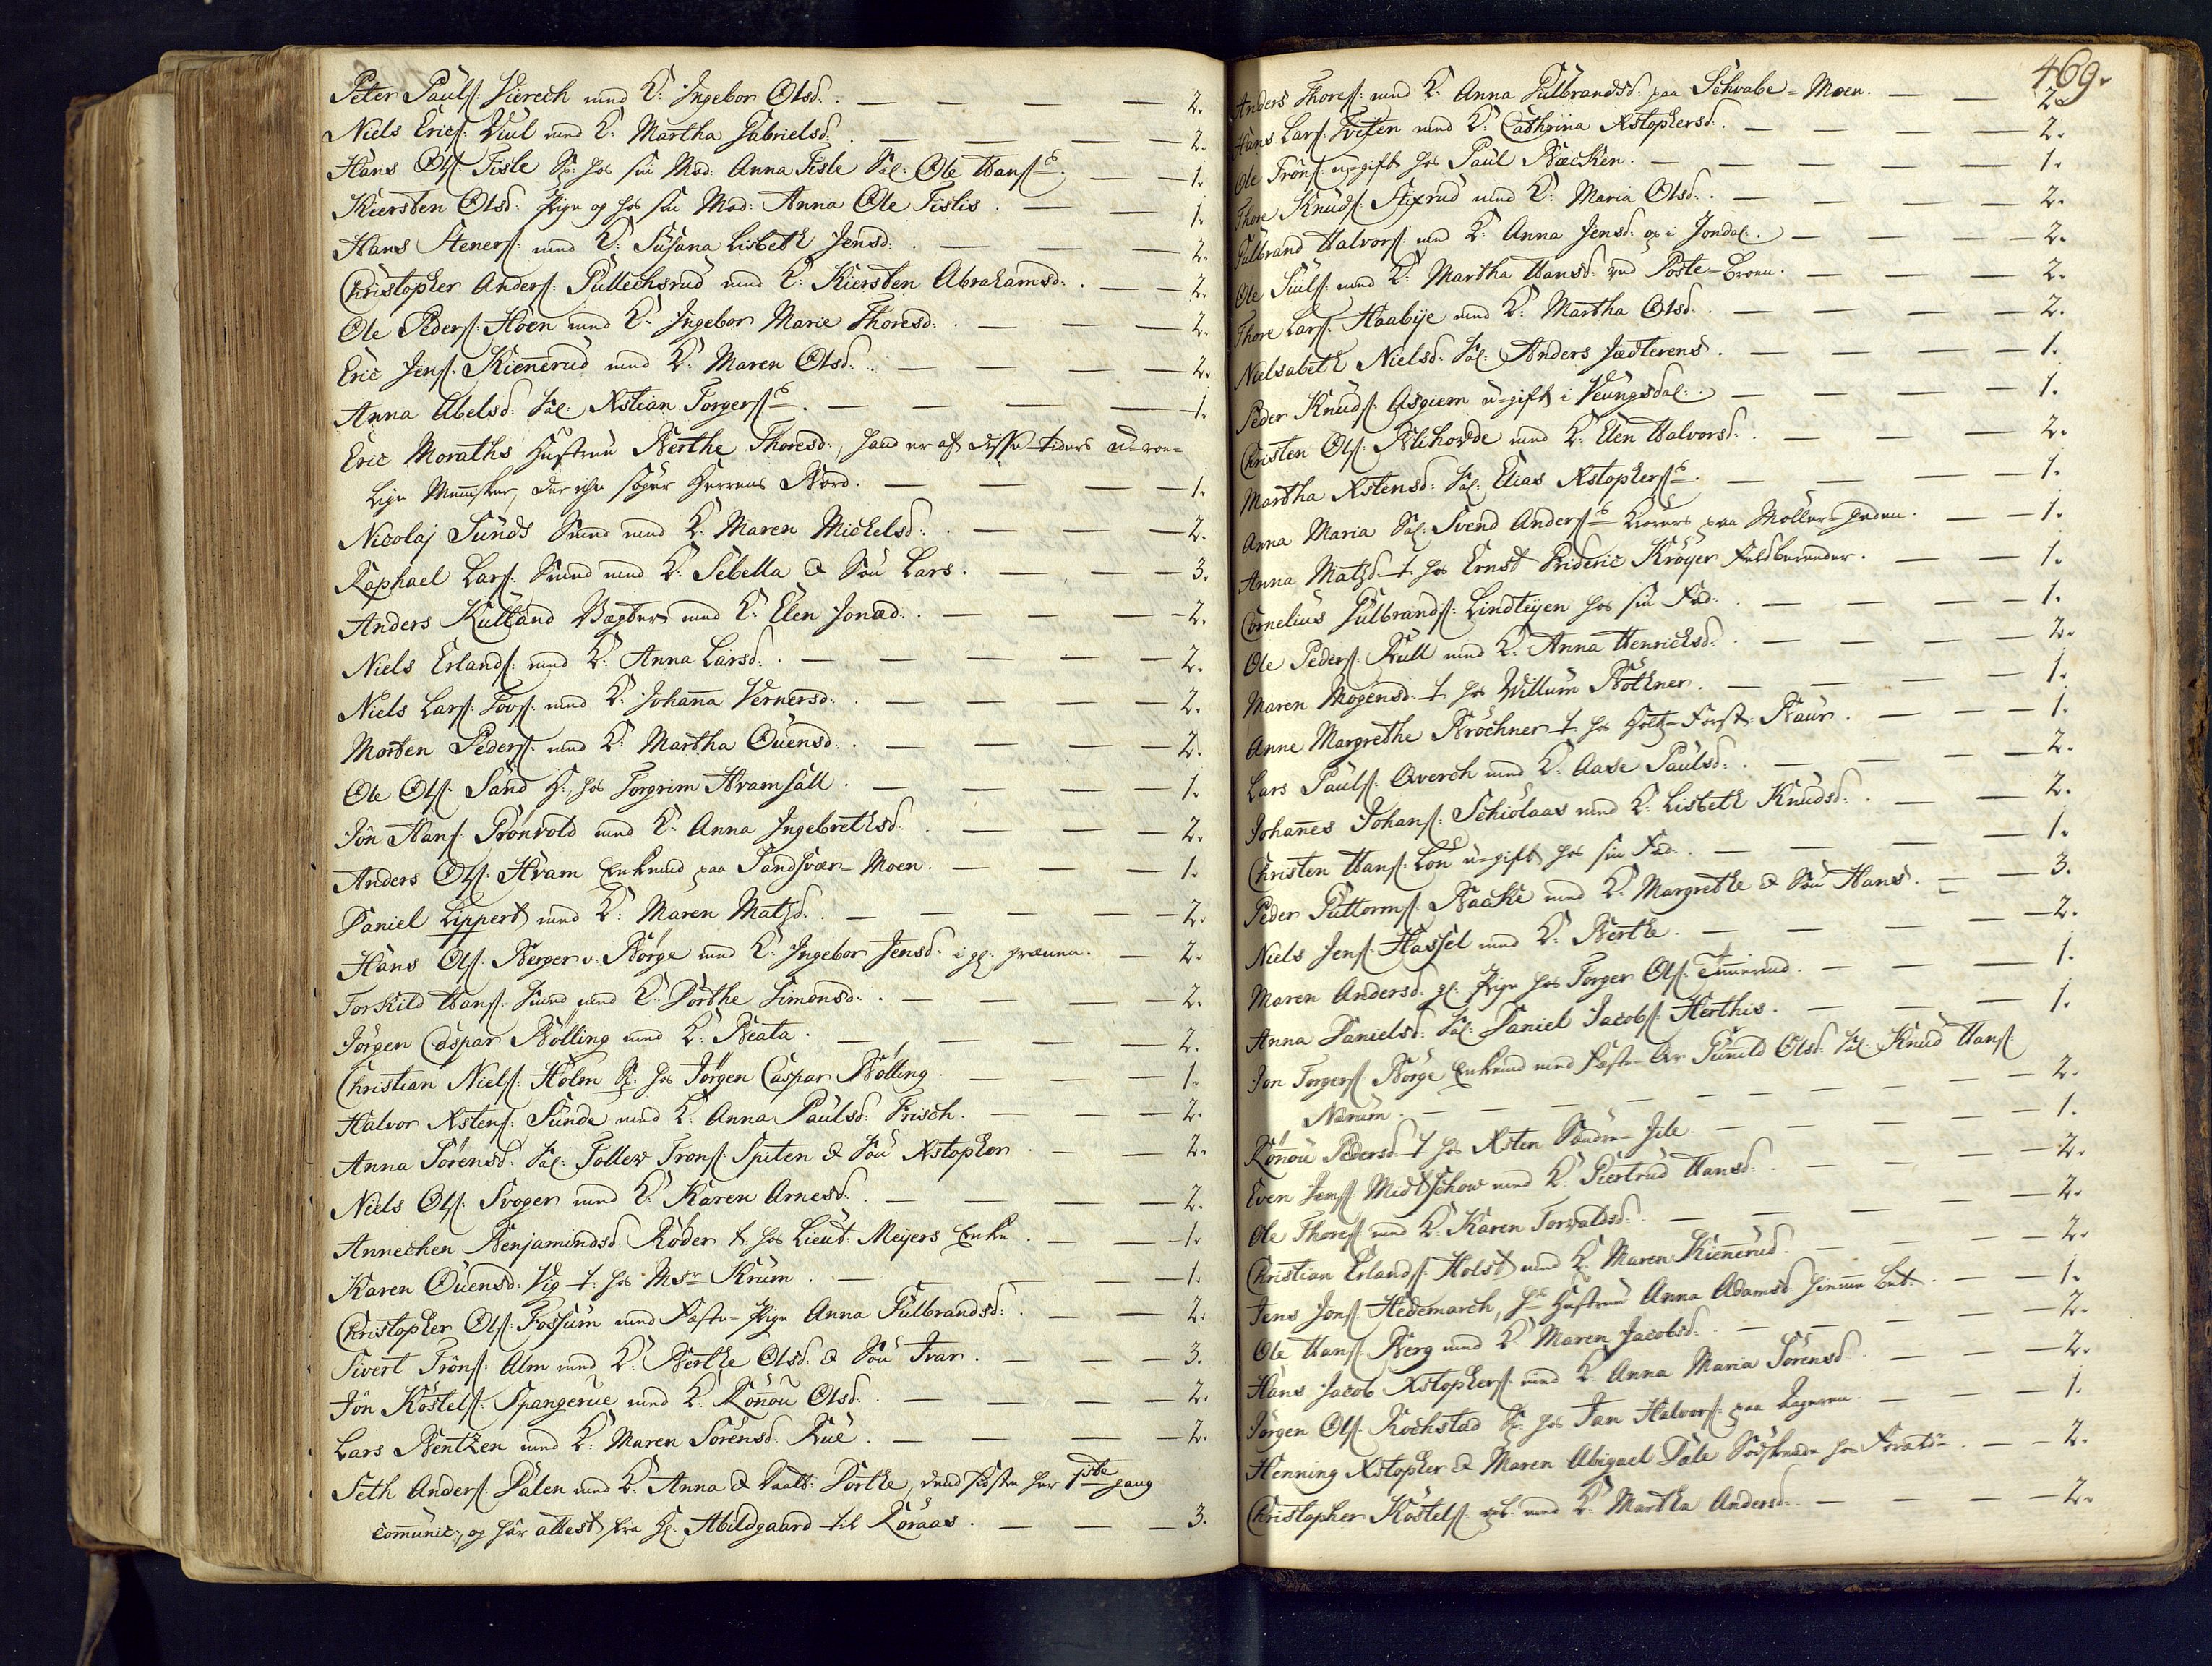 Peter Pauls: Vierech med K: Ingebor Olsd: . — — — — 2.
Niels Erics: Viul med K: Martha Gabrielsd: . — — — 2.
Hans Ols: Fisle hos sin Mod: Anna Fisle Sal: Ole Hans — — 1.
Kiersten Olsd: Pige og hos sin Mod: Anna Ole Fislis . — — 1.
Hans Steners: med K: Susana Lisbeth Jensd: . — — — 2.
Christopher Anders: Gullechsrud med K: Kiersten Abrahamsd: . — — 2.
Ole Peders: Hoen med K: Ingebor Marie Thoresd: . — — — 2.
Eric Jens: Kiennerud med K: Maren Olsd: . — — — 2.
Anna Abelsd: Sal: Xstian Torgers . — — — — 1.
Eric Moraths Hustrue Berthe Thoresd:, hand er af disse tiders u-roe-
lige Mennisker, der ikke søger Herrens Bord. — — — 1.
Nicolaj Sunds Smed med K: Maren Michelsd: . — — — 2.
Raphael Lars: Smed med K: Sebella & Søn Lars. — — — 3.
Anders Kulland Vægter med K: Elen Jonæd: . — — — 2.
Niels Erlands: med K: Anna Larsd: . — — — — 2.
Niels Lars: Tovs: med K: Johanna Vernersd: . — — — 2.
Morten Peders: med K: Martha Ouensd: . — — — 2.
Ole Ols: Sand hos Torgrim Hvamsall . — — — 1.
Jon Hans: Grønvold med K: Anna Ingebrethsd: . — — — 2.
Anders Ols: Hvam Enkemand paa Sandsvær-Moen. — — — 1.
Daniel Lippert med K: Maren Matzd: . — — — — 2.
Hans Ols: Berger v. Børge med K: Ingebor Jensd: i gl: — 2.
Torkild Hans: Smed med K: Dorthe Simonsd: . — — — 2.
Jørgen Caspar Bølling med K: Beata . — — — 2.
Christian Niels: Holm hos Jørgen Caspar Bølling . — — — 1.
Halvor Xstens: Sunde med K: Anna Paulsd: Frisch. — — — 2.
Anna Sørensd: Sal: Tollew Trons: Spiten & Søn Xstopher . — — 2.
Niels Ols: Svoger med K: Karen Arnesd: . — — — 2.
Annechen Benjamindsd: Røder t: hos Lieut: Meyers Enke . — — 1.
Karen Ouensd: Vig t: hos Msr Krum . — — — 1.
Christopher Ols: Fossum med Fæste-Pige Anna Gulbrandsd: . — 2.
Sivert Trons: Alm med K: Berthe Olsd: & Søn Ivar. — — — 3.
Jon Kostels: Spangerue med K: Ronnou Olsd: . — — — 2.
Lars Bentzen med K: Maren Sorensd: Rue . — — — 2.
Seth Anders: Dalen med K: Anna & Daatt: Dorthe, dend sidste her 1ste gang
communic:, og har attest fra Hr: Abildgaard til Røraas . — — 3.
469.
Anders Thores: med K: Anna Gulbrandsd: paa Schvabe-Moen. — — 2.
Hans Lars: Tvisten med K: Cathrina Xstophersd: . — — — 2.
Ole Trons: u-gift hos Paul Bæcken. — — — — 1.
Thore Knuds: Stixrud med K: Maria Olsd: . — — — 2.
Gulbrand Halvors: med K: Anna Jensd: op i Jondal . — — — 2.
Ole Siuls: med K: Martha Hansd: ved Poste-Broen. — — — 2.
Thore Lars: Haabye med K: Martha Olsd: . — — — 2.
Nielsabeth Nielsd: Sal: Anders Jædterens . — — — 1.
Peder Knuds: Asgiem u-gift i Veungsdal: . — — — 1.
Christen Ols: Blihovde med K: Elen Halvorsd: . — — — 2.
Martha Xstensd: Sal: Elias Xstophers . — — — 1.
Anna Maria Sal: Svend Anders paa Møller- — — 1.
Anna Matzd: t: hos Ernst Frideric Krøyer Feldbereeder . — — 1.
Cornelius Gulbrands: Lindteyen hos sin Fad: . — — — 1.
Ole Peders: Kull med K: Anna Henrichsd: . — — — 2.
Maren Mogensd: t: hos Willum Bøthner . — — — 1.
Anne Margrethe Brøchner t: hos Holtz-Forst: Baur . — — 1.
Lars Pauls: Qverch med K: Aase Paulsd: . — — — 2.
Johannes Johans: Schiølaas med K: Lisbeth Knudsd: . — — 2.
Christen Hans: Lou u-gift hos sin Fad: . — — — 1.
Peder Guttorms: Backe med K: Margrethe & Søn Hans . — — 3.
Niels Jens: Hassel med K: Berthe . — — — 2.
Maren Andersd: gl: Pige hos Torger Ols: — — — 1.
Anna Danielsd: Sal: Daniel Jacobs Herthis . — — — 1.
Jon Torgers: Børge Enkemand med Fæste-Qv: Gunild Olsd: Sal: Knud Hans:
Nærum . — — — — — 2.
Rønnou Pedersd: t: hos Xsten Søndre-Jele . — — — 1.
Even Jens: Midtschow med K: Giertrud Hansd: . — — — 2.
Ole Thores: med K: Karen Torvaldsd: . — — — 2.
Christian Erlands: Holst med K: Maren Kiennerud . — — — 2.
Jens Jons: Hedemarch, hs Hustrue Anna Adamsd: — 1.
Ole Hans: Berg med K: Maren Jacobsd: . — — — 2.
Hans Jacob Xstophers: med K: Anna Maria Sørensd: . — — 2.
Jørgen Ols: Rochstad hos Jan Halvors: paa — — 1.
Henning Xstopher & Maren Abigael Dale Sødskende hos Foræld: . — 2.
Christopher Kostels: med K: Martha Andersd: . — — — 2.